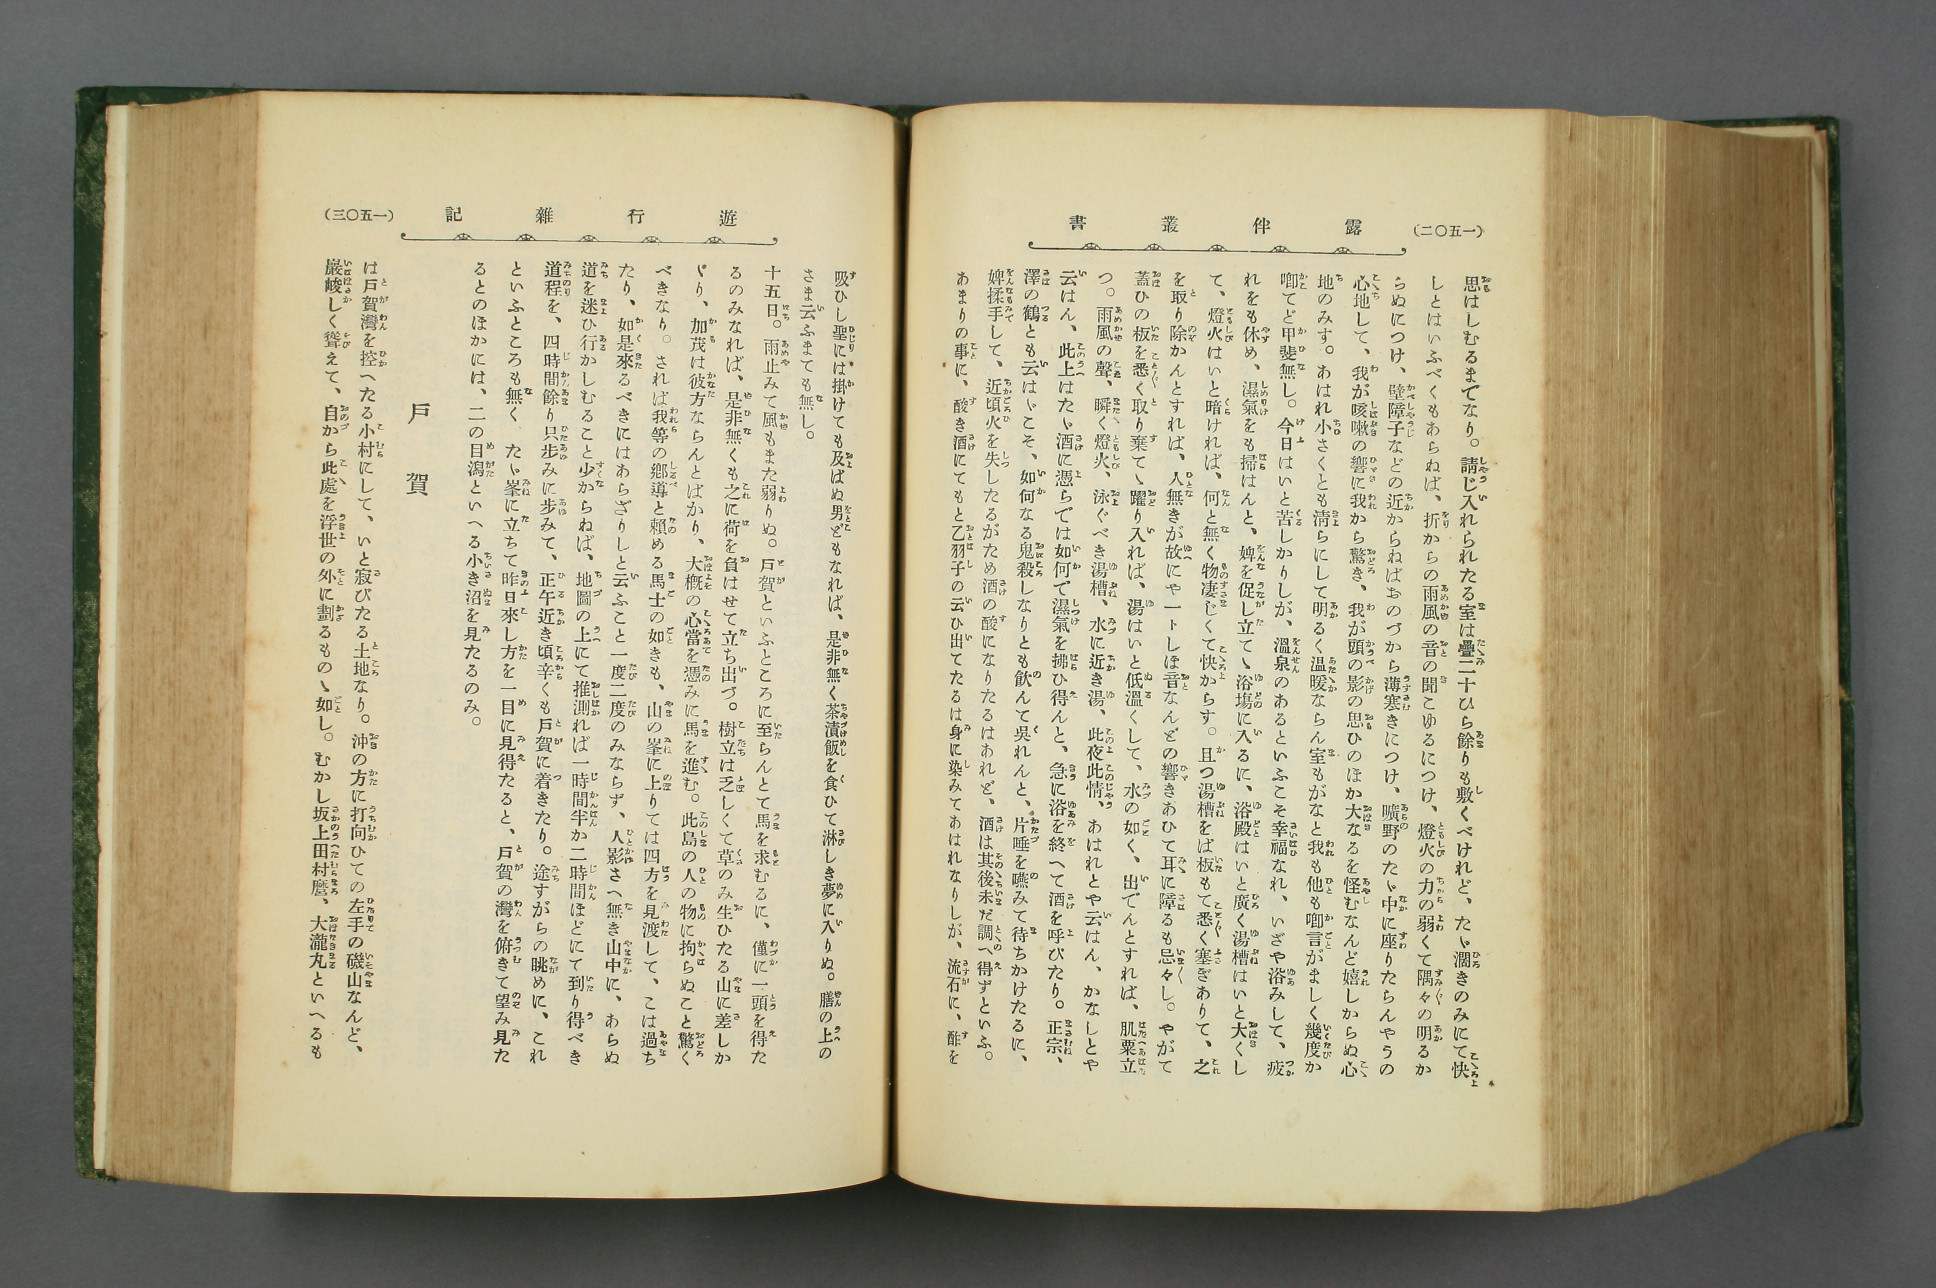 (一五〇二)
露伴叢書
思はしむるまでなり。請じ入れられたる室は疊二十ひら餘りも敷くべけれど、たゞ濶きのみにて快
しとはいふべくもあらねば、折からの雨風の音の聞こゆるにつけ、燈火の力の弱くて隅々の明るか
らぬにつけ、壁障子などの近からねばおのづから薄寒きにつけ、曠野のたゞ中に座りたらんやうの
心地して、我が咳嗽の響に我から驚き、我が頭の影の思ひのほか大なるを怪むなんど嬉しからぬ心
地のみす。あはれ小さくとも淸らにして明るく温暖ならん室もがなと我も他も喞言がましく幾度か
喞てど甲斐無し。今日はいと苦しかりしが、溫泉のあるといふこそ幸福なれ、いざや浴みして、疲
れをも休め、濕氣をも掃はんと、婢を促し立てゝ浴塲に入るに、浴殿はいと廣く湯槽はいと大くし
て、燈火はいと暗ければ、何と無く物凄じくて快からず。且つ湯槽をば板もて悉く塞ぎありて、之
を取り除かんとすれば、人無きが故にや一トしほ音なんどの響きあひて耳に障るも忌々し。やがて
蓋ひの板を悉く取り棄てゝ躍り入れば、湯はいと低溫くして、水の如く、出でんとすれば、肌粟立
つ。雨風の聲、瞬く燈火、泳ぐべき湯槽、水に近き湯、此夜此情、あはれとや云はん、かなしとや
云はん、此上はたゞ酒に憑らでは如何で濕氣を拂ひ得んと、急に浴を終へて酒を呼びたり。正宗、
澤の鶴とも云はゞこそ、如何なる鬼殺しなりとも飮んて吳れんと、片唾を嚥みて待ちかけたるに、
婢揉手して、近頃火を失したるがため酒の酸になりたるはあれど、酒は其後未だ調へ得ずといふ。
あまりの事に、酸き酒にてもと乙羽子の云ひ出てたるは身に染みてあはれなりしが、流石に、酢を
(一五〇三)
遊行雜記
吸ひし聖には掛けても及ばぬ男どもなれば、是非無く茶漬飯を食ひて淋しき夢に入りぬ。膳の上の
さま云ふまても無し。
十五日。雨止みて風もまた弱りぬ。戸賀といふところに至らんとて馬を求むるに、僅に一頭を得た
るのみなれば、是非無くも之に荷を負はせて立ち出づ。樹立は乏しくて草のみ生ひたる山に差しか
ゝり、加茂は彼方ならんとばかり、大槪の心當を憑みに馬を進む。此島の人の物に拘らぬこと驚く
べきなり。されば我等の鄕導と賴める馬士の如きも、山の峯に上りては四方を見渡して、こは過ち
たり、如是來るべきにはあらざりしと云ふこと一度二度のみならず、人影さへ無き山中に、あらぬ
道を迷ひ行かしむること少からねば、地圖の上にて推測れば一時間半か二時間ほどにて到り得べき
道程を、四時間餘り只步みに步みて、正午近き頃辛くも戸賀に着きたり。途すがらの眺めに、これ
といふところも無く たゞ峯に立ちて昨日來し方を一目に見得たると、戸賀の灣を俯きて望み見た
るとのほかには、二の目潟といへる小き沼を見たるのみ。
戸賀
は戸賀灣を控へたる小村にして、いと寂びたる土地なり。沖の方に打向ひての左手の磯山なんど、
巖峻しく聳えて、自から此處を浮世の外に劃るものゝ如し。むかし坂上田村麿、大瀧丸といへるも